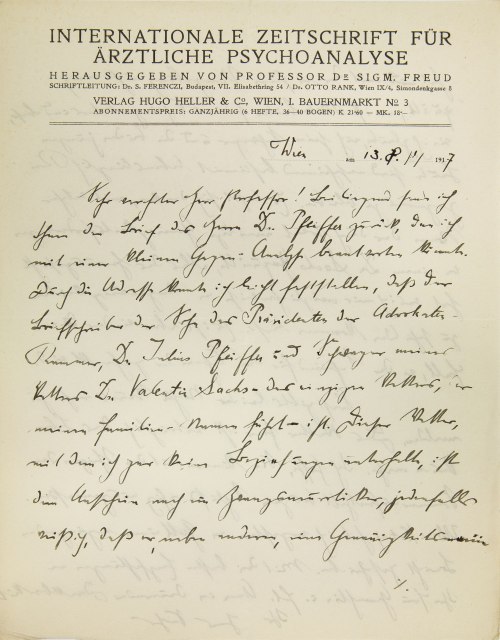 INTERNATIONALE ZEITSCHRIFT FÜR
ÄRZTLICHE PSYCHOANALYSE
HERAUSGEGEBEN VON PROFESSOR DR SIGM. FREUD
SCHRIFTLEITUNG: DR. S. FERENCZI, Budapest, VII. Elisabethring 54 / DR. OTTO RANK, Wien IX/4, Simondenkgasse 8
VERLAG HUGO HELLER & Co, WIEN, I. BAUERNMARKT No 3
ABONNEMENTSPREIS: GANZJÄHRIG (6 HEFTE, 36—40 BOGEN) K 21·60 — MK. 18·—
Wien am 13. 1917
Sehr verehrter Herr Professor! Beiliegend sende ich
Ihnen den Brief des Herrn Dr. Pfeiffer zurück, den ich
mit einer kleinen Gegen-Analyse beantworten könnte.
Durch die Adresse konnte ich leicht feststellen, daß der
Briefschreiber der Sohn des Präsidenten der Advokaten-
Kammer, Dr. Julius Pfeiffer und Schwager meines
Vetters Dr. Valentin Sachs - des einzigen Vetters, der
meinen Familien-Namen führt - ist. Dieser Vetter,
mit dem ich gar keine Beziehungen unterhalte, ist
dem Anschein nach ein Zwangsneurotiker, jedenfalls
weiß ich, daß er, neben anderem, eine Genauigkeitsmanie
./.